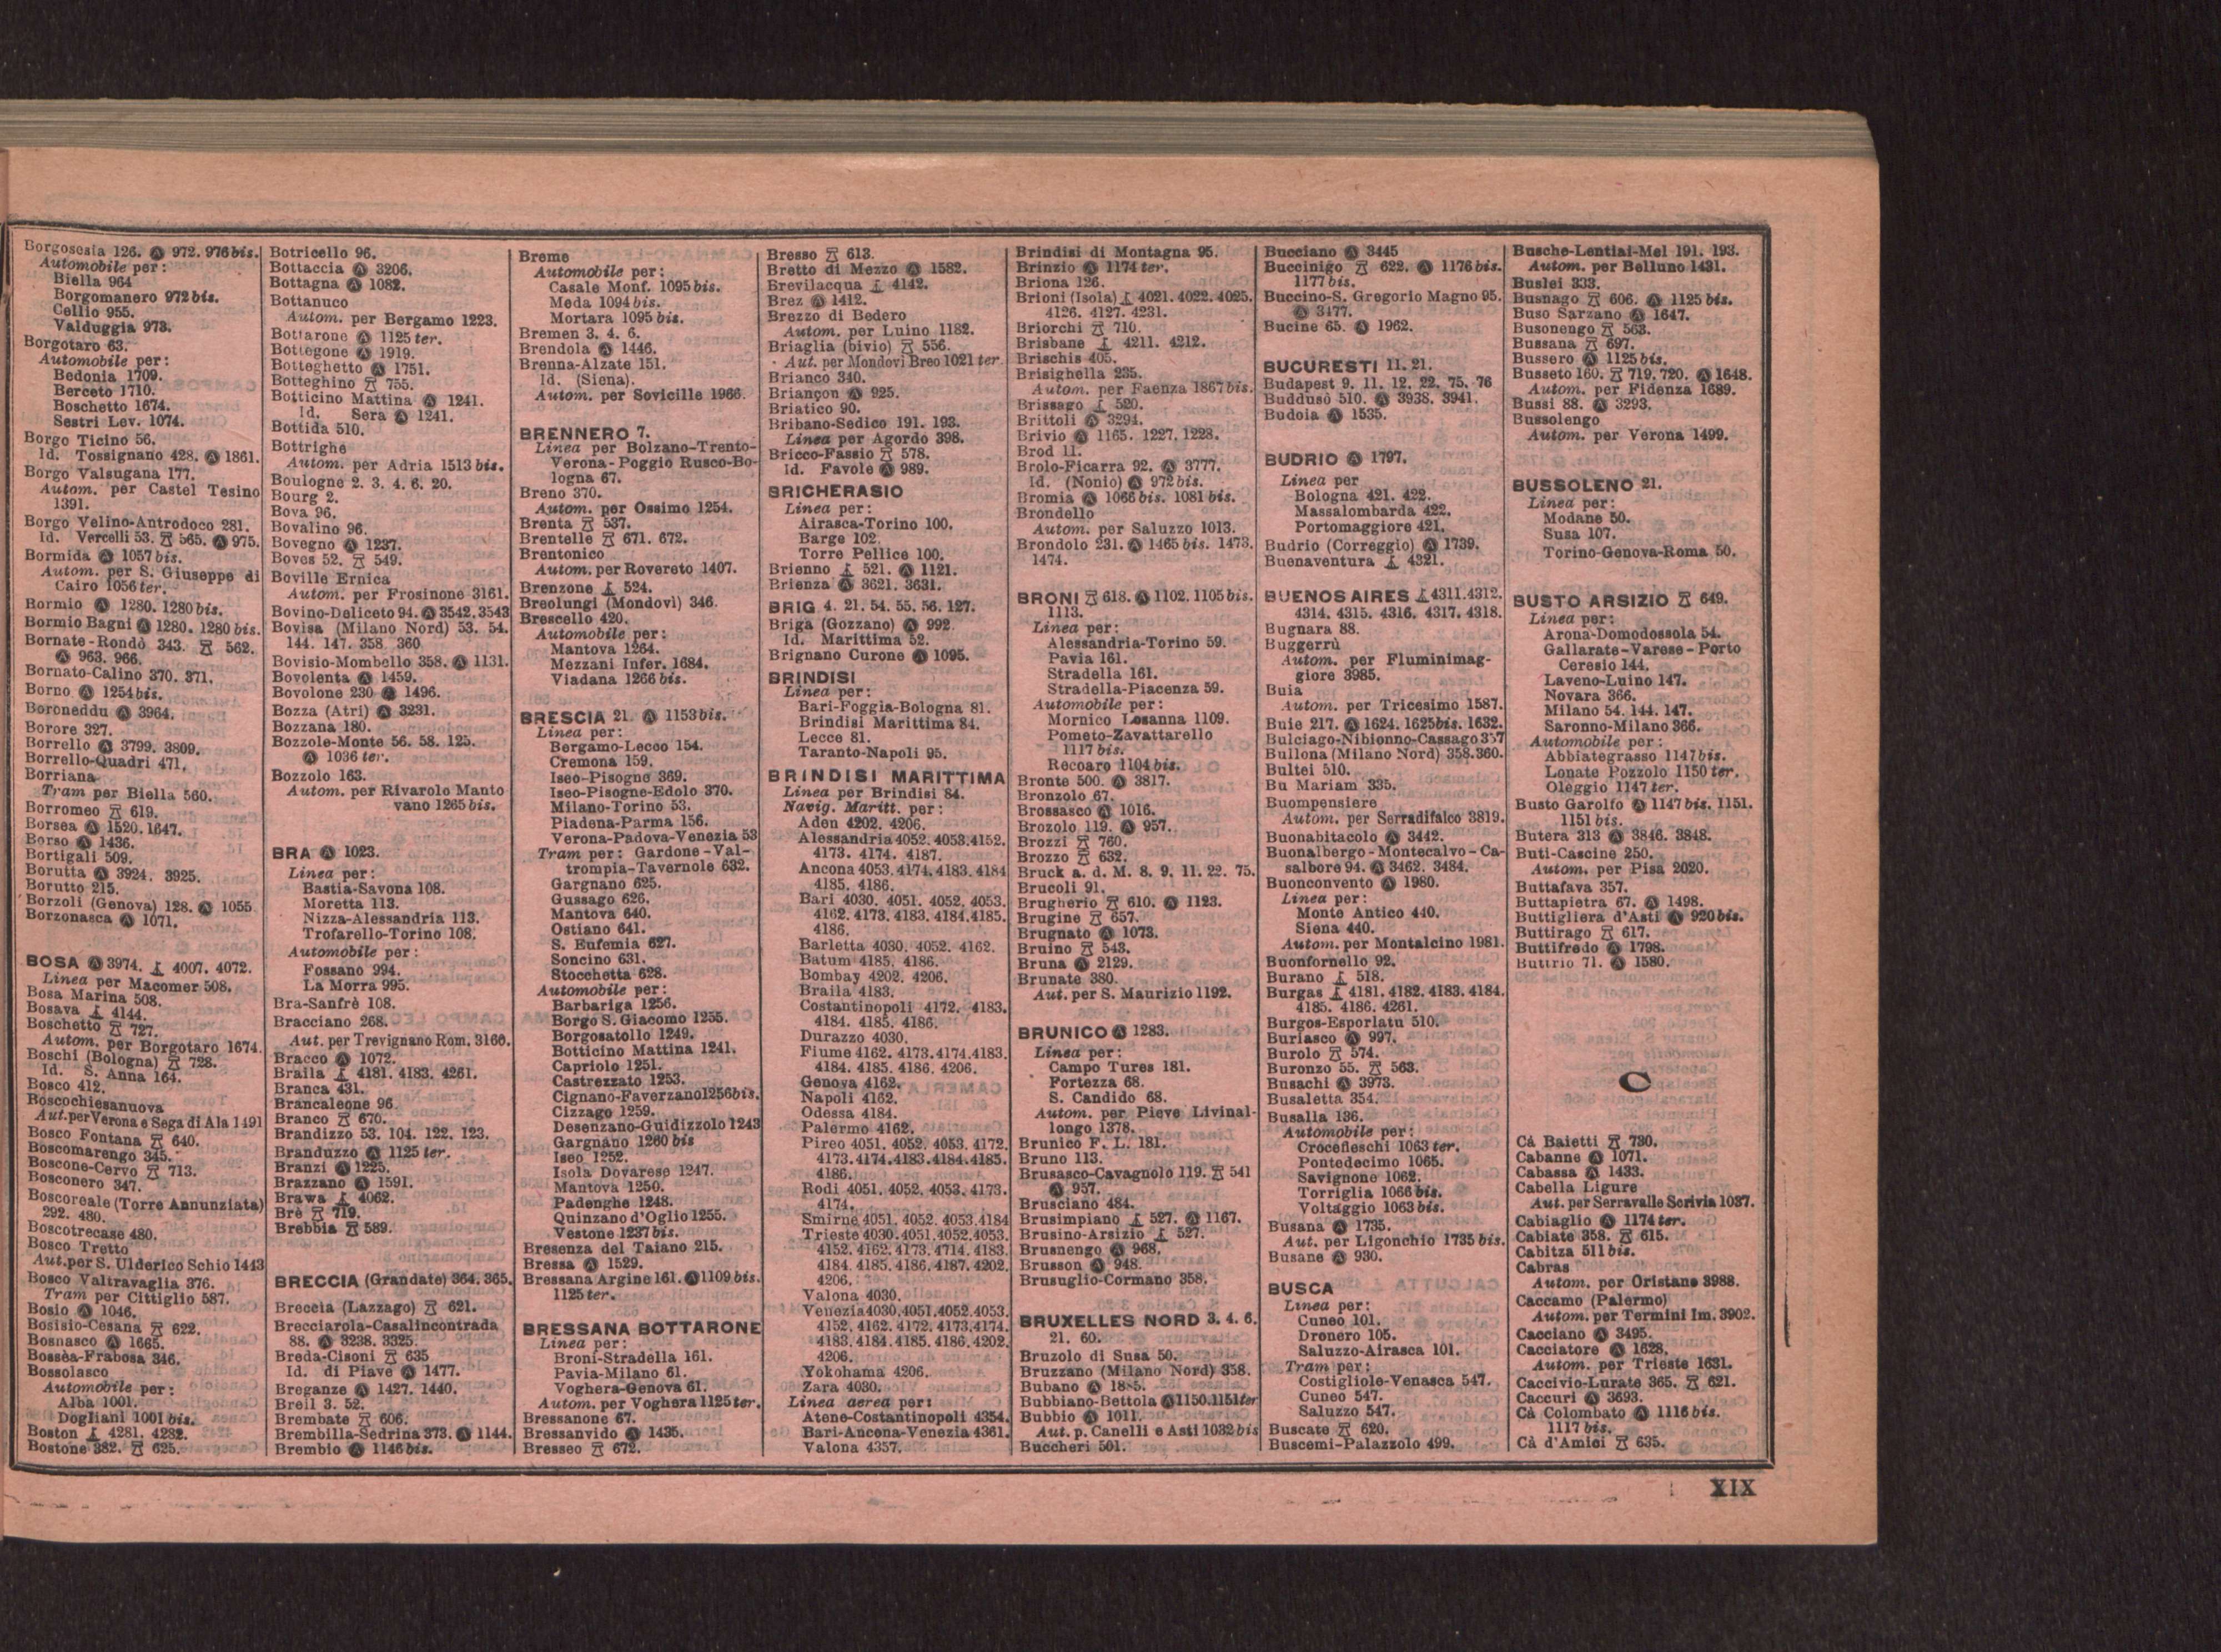 Borgosesia 126. Ⓐ 972. 976bis.
Automobile per:
Biella 964
Borgomanero 972bis.
Cellio 955.
Valduggia 973.
Borgotaro 63.
Automobile per:
Bedonia 1709.
Berceto 1710.
Boschetto 1674.
Sestri Lev. 1074.
Borgo Ticino 56.
Id. Tossignano 428. Ⓐ 1861.
Borgo Valsugana 177.
Autom. per Castel Tesino
1391.
Borgo Velino-Antrodoco 281.
Id. Vercelli 53. 565. Ⓐ 975.
Bormida Ⓐ 1057bis.
Autom. per S. Giuseppe di
Cairo 1056ter.
Bormio Ⓐ 1280. 1280bis.
Bormio Bagni Ⓐ 1280. 1280bis.
Bornate-Rondò 343. 562.
Ⓐ 963. 966.
Bornato-Calino 370. 371.
Borno Ⓐ 1254bis.
Boroneddu Ⓐ 3964.
Borore 327.
Borrello Ⓐ 3799. 3809.
Borrello-Quadri 471.
Borriana
Tram per Biella 560.
Borromeo 619.
Borsea Ⓐ 1520. 1647.
Borso Ⓐ 1436.
Bortigali 509.
Borutta Ⓐ 3924. 3925.
Borutto 215.
Borzoli (Genova) 128. Ⓐ 1055
Borzonasca Ⓐ 1071.
BOSA Ⓐ 3974. 4007. 4072.
Linea per Macomer 508.
Bosa Marina 508.
Bosava 4144.
Boschetto 727.
Autom. per Borgotaro 1674.
Boschi (Bologna) 728.
Id. S. Anna 164.
Bosco 412.
Boscochiesanuova
Aut.per Verona e Sega di Ala 1491
Bosco Fontana 640.
Boscomarengo 345.
Boscone-Cervo 713.
Bosconero 347.
Boscoreale (Torre Annunziata)
292. 480.
Boscotrecase 480.
Bosco Tretto
Aut.per S. Ulderico Schio 1443
Bosco Valtravaglia 376.
Tram per Cittiglio 587.
Bosio Ⓐ 1046.
Bosisio-Cesana 622.
Bosnasco Ⓐ 1665.
Bossèa-Frabosa 346.
Bossolasco
Automobile per:
Alba 1001.
Dogliani 1001bis.
Boston 4281. 4282.
Bostone 382. 625.
Botricello 96.
Bottaccia Ⓐ 3206.
Bottagna Ⓐ 1082.
Bottanuco
Autom. per Bergamo 1223.
Bottarone Ⓐ 1125ter.
Bottegone Ⓐ 1919.
Botteghetto Ⓐ 1751.
Botteghino 755.
Botticino Mattina Ⓐ 1241.
Id. Sera Ⓐ 1241.
Bottida 510.
Bottrighe
Autom. per Adria 1513bis.
Boulogne 2. 3. 4. 6. 20.
Bourg 2.
Bova 96.
Bovalino 96.
Bovegno Ⓐ 1237.
Boves 52. 549.
Boville Ernica
Autom. per Frosinone 3161.
Bovino-Deliceto 94. Ⓐ 3542. 3543
Bovisa (Milano Nord) 53. 54.
144. 147. 358. 360
Bovisio-Mombello 358. Ⓐ 1131.
Bovolenta Ⓐ 1459.
Bovolone 230 Ⓐ 1496.
Bozza (Atri) Ⓐ 3231.
Bozzana 180.
Bozzole-Monte 56. 58. 125.
Ⓐ 1036ter.
Bozzolo 163.
Autom. per Rivarolo Manto
vano 1265bis.
BRA Ⓐ 1023.
Linea per:
Bastia-Savona 108.
Moretta 113.
Nizza-Alessandria 113.
Trofarello-Torino 108.
Automobile per:
Fossano 994.
La Morra 995.
Bra-Sanfrè 108.
Bracciano 268.
Aut. per Trevignano Rom. 3160.
Bracco Ⓐ 1072.
Braila 4181. 4183. 4261.
Branca 431.
Brancaleone 96.
Branco 670.
Brandizzo 53. 104. 122. 123.
Branduzzo Ⓐ 1125ter.
Branzi Ⓐ 1225.
Brazzano Ⓐ 1591.
Brawa 4062.
Brè 719.
Brebbia 589.
BRECCIA (Grandate) 364. 365.
Breccia (Lazzago) 621.
Brecciarola-Casalincontrada
88. Ⓐ 3238. 3325.
Breda-Cisoni 635
Id. di Piave Ⓐ 1477.
Breganze Ⓐ 1427. 1440.
Breil 3. 52.
Brembate 606.
Brembilla-Sedrina 373. Ⓐ 1144.
Brembio Ⓐ 1146bis.
Breme
Automobile per:
Casale Monf. 1095bis.
Meda 1094bis.
Mortara 1095bis.
Bremen 3. 4. 6.
Brendola Ⓐ 1446.
Brenna-Alzate 151.
Id. (Siena).
Autom. per Sovicille 1966.
BRENNERO 7.
Linea per Bolzano-Trento-
Verona-Poggio Rusco-Bo-
logna 67.
Breno 370.
Autom. per Ossimo 1254.
Brenta 537.
Brentelle 671. 672.
Brentonico
Autom. per Rovereto 1407.
Brenzone 524.
Breolungi (Mondovì) 346.
Brescello 420.
Automobile per:
Mantova 1264.
Mezzani Infer. 1684.
Viadana 1266bis.
BRESCIA 21. Ⓐ 1153bis.
Linea per:
Bergamo-Lecco 154.
Cremona 159.
Iseo-Pisogne 369.
Iseo-Pisogne-Edolo 370.
Milano-Torino 53.
Piadena-Parma 156.
Verona-Padova-Venezia 53
Tram per: Gardone-Val-
trompia-Tavernole 632.
Gargnano 625.
Gussago 626.
Mantova 640.
Ostiano 641.
S. Eufemia 627.
Soncino 631.
Stocchetta 628.
Automobile per:
Barbariga 1256.
Borgo S. Giacomo 1255.
Borgosatollo 1249.
Botticino Mattina 1241.
Capriolo 1251.
Castrezzato 1253.
Cignano-Faverzano1256bis.
Cizzago 1259.
Desenzano-Guidizzolo 1243
Gargnano 1260bis
Iseo 1252.
Isola Dovarese 1247.
Mantova 1250.
Padenghe 1248.
Quinzano d'Oglio 1255.
Vestone 1237bis.
Bresenza del Taiano 215.
Bressa Ⓐ 1529.
Bressana Argine 161. Ⓐ 1109bis.
1125ter.
BRESSANA BOTTARONE
Linea per:
Broni-Stradella 161.
Pavia-Milano 61.
Voghera-Genova 61.
Autom. per Voghera 1125ter.
Bressanone 67.
Bressanvido Ⓐ 1435.
Bresseo 672.
Bresso 613.
Bretto di Mezzo Ⓐ 1582.
Brevilacqua 4142.
Brez Ⓐ 1412.
Brezzo di Bedero
Autom. per Luino 1182.
Briaglia (bivio) 556.
Aut. per Mondovì Breo 1021ter
Brianco 340.
Briançon Ⓐ 925.
Briatico 90.
Bribano-Sedico 191. 193.
Linea per Agordo 398.
Bricco-Fassio 578.
Id. Favole Ⓐ 989.
BRICHERASIO
Linea per:
Airasca-Torino 100.
Barge 102
Torre Pellice 100.
Brienno 521. Ⓐ 1121.
Brienza Ⓐ 3621. 3631.
BRIG 4. 21. 54. 55. 56. 127.
Briga (Gozzano) Ⓐ 992
Id. Marittima 52.
Brignano Curone Ⓐ 1095.
BRINDISI
Linea per:
Bari-Foggia-Bologna 81.
Brindisi Marittima 84.
Lecce 81.
Taranto-Napoli 95.
BRINDISI MARITTIMA
Linea per Brindisi 84.
Navig. Maritt. per:
Aden 4202. 4206.
Alessandria 4052. 4053.4152.
4173. 4174. 4187.
Ancona 4053.4174.4183.4184
4185. 4186.
Bari 4030. 4051. 4052. 4053.
4162. 4173. 4183. 4184.4185.
4186.
Barletta 4030. 4052. 4162.
Batum 4185. 4186.
Bombay 4202. 4206.
Braila 4183.
Costantinopoli 4172. 4183.
4184. 4185. 4186.
Durazzo 4030.
Fiume 4162. 4173.4174.4183.
4184. 4185. 4186. 4206.
Genova 4162.
Napoli 4162.
Odessa 4184.
Palermo 4162.
Pireo 4051. 4052. 4053. 4172.
4173.4174.4183.4184.4185.
4186.
Rodi 4051. 4052. 4053. 4173.
4174.
Smirne 4051. 4052. 4053.4184
Trieste 4030.4051.4052.4053.
4152. 4162. 4173. 4714. 4183.
4184. 4185. 4186. 4187. 4202.
4206.
Valona 4030.
Venezia 4030.4051.4052.4053.
4152. 4162. 4172. 4173.4174.
4183. 4184. 4185. 4186. 4202.
4206.
Yokohama 4206.
Zara 4030.
Linea aerea per:
Atene-Costantinopoli 4354.
Bari-Ancona-Venezia 4361.
Valona 4357.
Brindisi di Montagna 95.
Brinzio Ⓐ 1174ter.
Briona 126.
Brioni (Isola) 4021. 4022. 4025.
4126. 4127. 4231.
Briorchi 710.
Brisbane 4211. 4212.
Brischis 405.
Brisighella 235.
Autom. per Faenza 1867bis.
Brissago 520.
Brittoli Ⓐ 3294.
Brivio Ⓐ 1165. 1227. 1228.
Brod 11.
Brolo-Ficarra 92. Ⓐ 3777.
Id. (Nonio) Ⓐ 972bis.
Bromia Ⓐ 1066bis. 1081bis.
Brondello
Autom. per Saluzzo 1013.
Brondolo 231. Ⓐ 1465bis. 1473.
1474.
BRONI 618. Ⓐ 1102. 1105bis.
1113.
Linea per:
Alessandria-Torino 59.
Pavia 161.
Stradella 161.
Stradella-Piacenza 59.
Automobile per:
Mornico Losanna 1109.
Pometo-Zavattarello
1117bis.
Recoaro 1104bis.
Bronte 500. Ⓐ 3817.
Bronzolo 67.
Brossasco Ⓐ 1016.
Brozolo 119. Ⓐ 957.
Brozzi 760.
Brozzo 632.
Bruck a. d. M. 8. 9. 11. 22. 75.
Brucoli 91.
Brugherio 610. Ⓐ 1123.
Brugine 657.
Brugnato Ⓐ 1073.
Bruino 543.
Bruna Ⓐ 2129.
Brunate 380.
Aut. per S. Maurizio 1192.
BRUNICO Ⓐ 1283.
Linea per:
Campo Tures 181.
Fortezza 68.
S. Candido 68.
Autom. per Pieve Livinal-
longo 1378.
Brunico F. L. 181.
Bruno 113.
Brusasco-Cavagnolo 119. 541
Ⓐ 957.
Brusciano 484.
Brusimpiano 527. Ⓐ 1167.
Brusino-Arsizio 527.
Brusnengo Ⓐ 968.
Brusson Ⓐ 948.
Brusuglio-Cormano 358.
BRUXELLES NORD 3. 4. 6.
21. 60.
Bruzolo di Susa 50.
Bruzzano (Milano Nord) 358.
Bubano Ⓐ
Bubbiano-Bettola Ⓐ 1150.1151ter
Bubbio Ⓐ 1011.
Aut. p. Canelli e Asti 1032bis
Buccheri 501.
Bucciano Ⓐ 3445
Buccinigo 622. Ⓐ 1176bis.
1177bis.
Buccino-S. Gregorio Magno 95.
Ⓐ 3477.
Bucine 65. Ⓐ 1962.
BUCURESTI 11. 21.
Budapest 9. 11. 12. 22. 75. 76
Buddusò 510. Ⓐ 3938. 3941.
Budoia Ⓐ 1535.
BUDRIO Ⓐ 1797.
Linea per
Bologna 421. 422.
Massalombarda 422.
Portomaggiore 421.
Budrio (Correggio) Ⓐ 1739.
Buenaventura 4321.
BUENOS AIRES 4311.4312.
4314. 4315. 4316. 4317. 4318.
Bugnara 88.
Buggerrù
Autom. per Fluminimag-
giore 3985.
Buia
Autom. per Tricesimo 1587.
Buie 217. Ⓐ 1624. 1625bis. 1632.
Bulciago-Nibionno-Cassago 357
Bullona (Milano Nord) 358.360.
Bultei 510.
Bu Mariam 335.
Buompensiere
Autom. per Serradifalco 3819.
Buonabitacolo Ⓐ 3442.
Buonalbergo-Montecalvo-Ca-
salbore 94. Ⓐ 3462. 3484.
Buonconvento Ⓐ 1980.
Linea per:
Monte Antico 440.
Siena 440.
Autom. per Montalcino 1981.
Buonfornello 92.
Burano 518.
Burgas 4181. 4182. 4183. 4184.
4185. 4186. 4261.
Burgos-Esporlatu 510.
Buriasco Ⓐ 997.
Burolo 574.
Buronzo 55. 563.
Busachi Ⓐ 3973.
Busaletta 354.
Busalla 136.
Automobile per:
Crocefieschi 1063ter.
Pontedecimo 1065.
Savignone 1062.
Torriglia 1066bis.
Voltaggio 1063bis.
Busana Ⓐ 1735.
Aut. per Ligonchio 1735bis.
Busane Ⓐ 930.
BUSCA
Linea per:
Cuneo 101.
Dronero 105.
Saluzzo-Airasca 101.
Tram per:
Costigliole-Venasca 547.
Cuneo 547.
Saluzzo 547.
Buscate 620.
Buscemi-Palazzolo 499.
Busche-Lentiai-Mel 191. 193.
Autom. per Belluno 1431.
Buslei 333.
Busnago 606. Ⓐ 1125bis.
Buso Sarzano Ⓐ 1647.
Busonengo 563.
Bussana 697.
Bussero Ⓐ 1125bis.
Busseto 160. 719. 720. Ⓐ 1648.
Autom. per Fidenza 1689.
Bussi 88. Ⓐ 3293.
Bussolengo
Autom. per Verona 1499.
BUSSOLENO 21.
Linea per:
Modane 50.
Susa 107.
Torino-Genova-Roma 50.
BUSTO ARSIZIO 649.
Linea per:
Arona-Domodossola 54.
Gallarate-Varese-Porto
Ceresio 144.
Laveno-Luino 147.
Novara 366.
Milano 54. 144. 147.
Saronno-Milano 366.
Automobile per:
Abbiategrasso 1147bis.
Lonate Pozzolo 1150ter.
Oleggio 1147ter.
Busto Garolfo Ⓐ 1147bis. 1151.
1151bis.
Butera 313 Ⓐ 3846. 3848.
Buti-Cascine 250.
Autom. per Pisa 2020.
Buttafava 357.
Buttapietra 67. Ⓐ 1498.
Buttigliera d'Asti Ⓐ 920bis.
Buttirago 617.
Buttifredo Ⓐ 1798.
Buttrio 71. Ⓐ 1580.
C
Cà Baietti 730.
Cabanne Ⓐ 1071.
Cabassa Ⓐ 1433.
Cabella Ligure
Aut. per Serravalle Scrivia 1037.
Cabiaglio Ⓐ 1174ter.
Cabiate 358. 615.
Cabitza 511bis.
Cabras
Autom. per Oristano 3988.
Caccamo (Palermo)
Autom. per Termini Im. 3902.
Cacciano Ⓐ 3495.
Cacciatore Ⓐ 1628.
Autom. per Trieste 1631.
Caccivio-Lurate 365. 621.
Caccuri Ⓐ 3693.
Cà Colombato Ⓐ 1116bis.
1117bis.
Cà d'Amici 635.
XIX